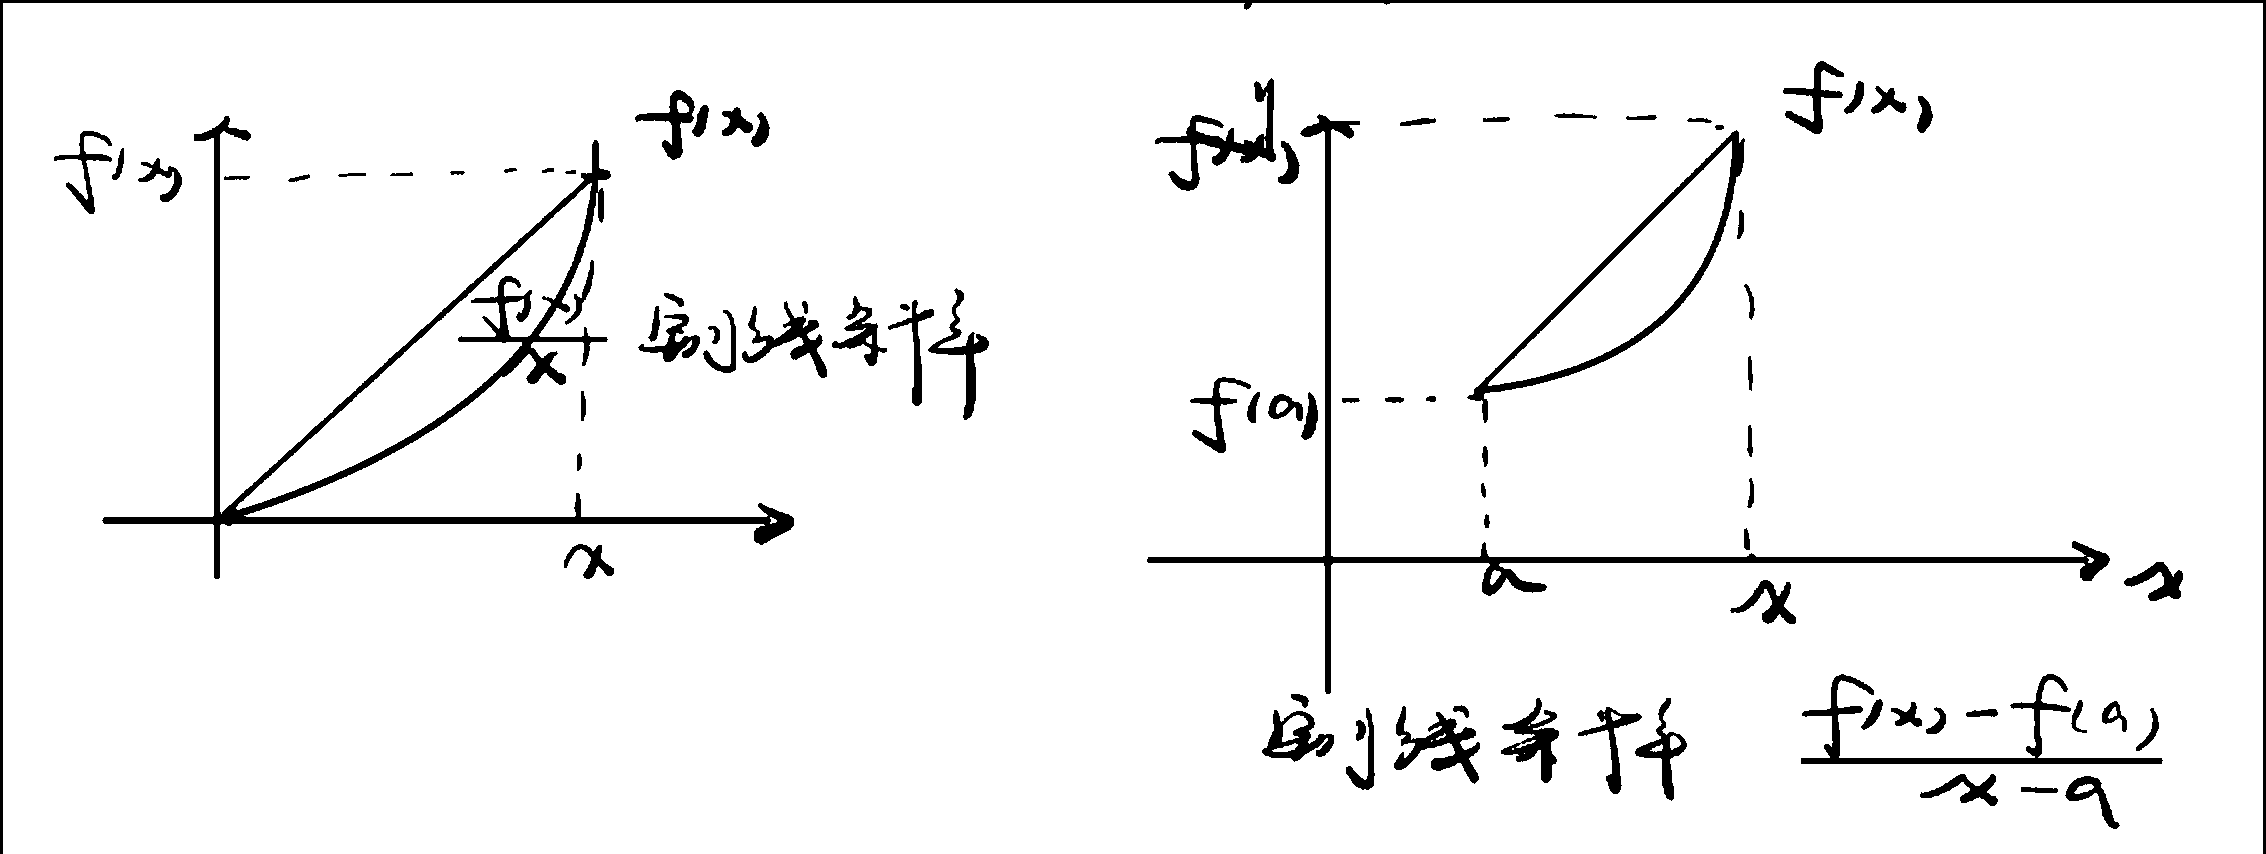 f(x)
f(x)
f(x)
x
割线斜率
x
y
f(x)
f(x)
f(a)
a
x
x
割线斜率
f(x)-f(a)
x-a